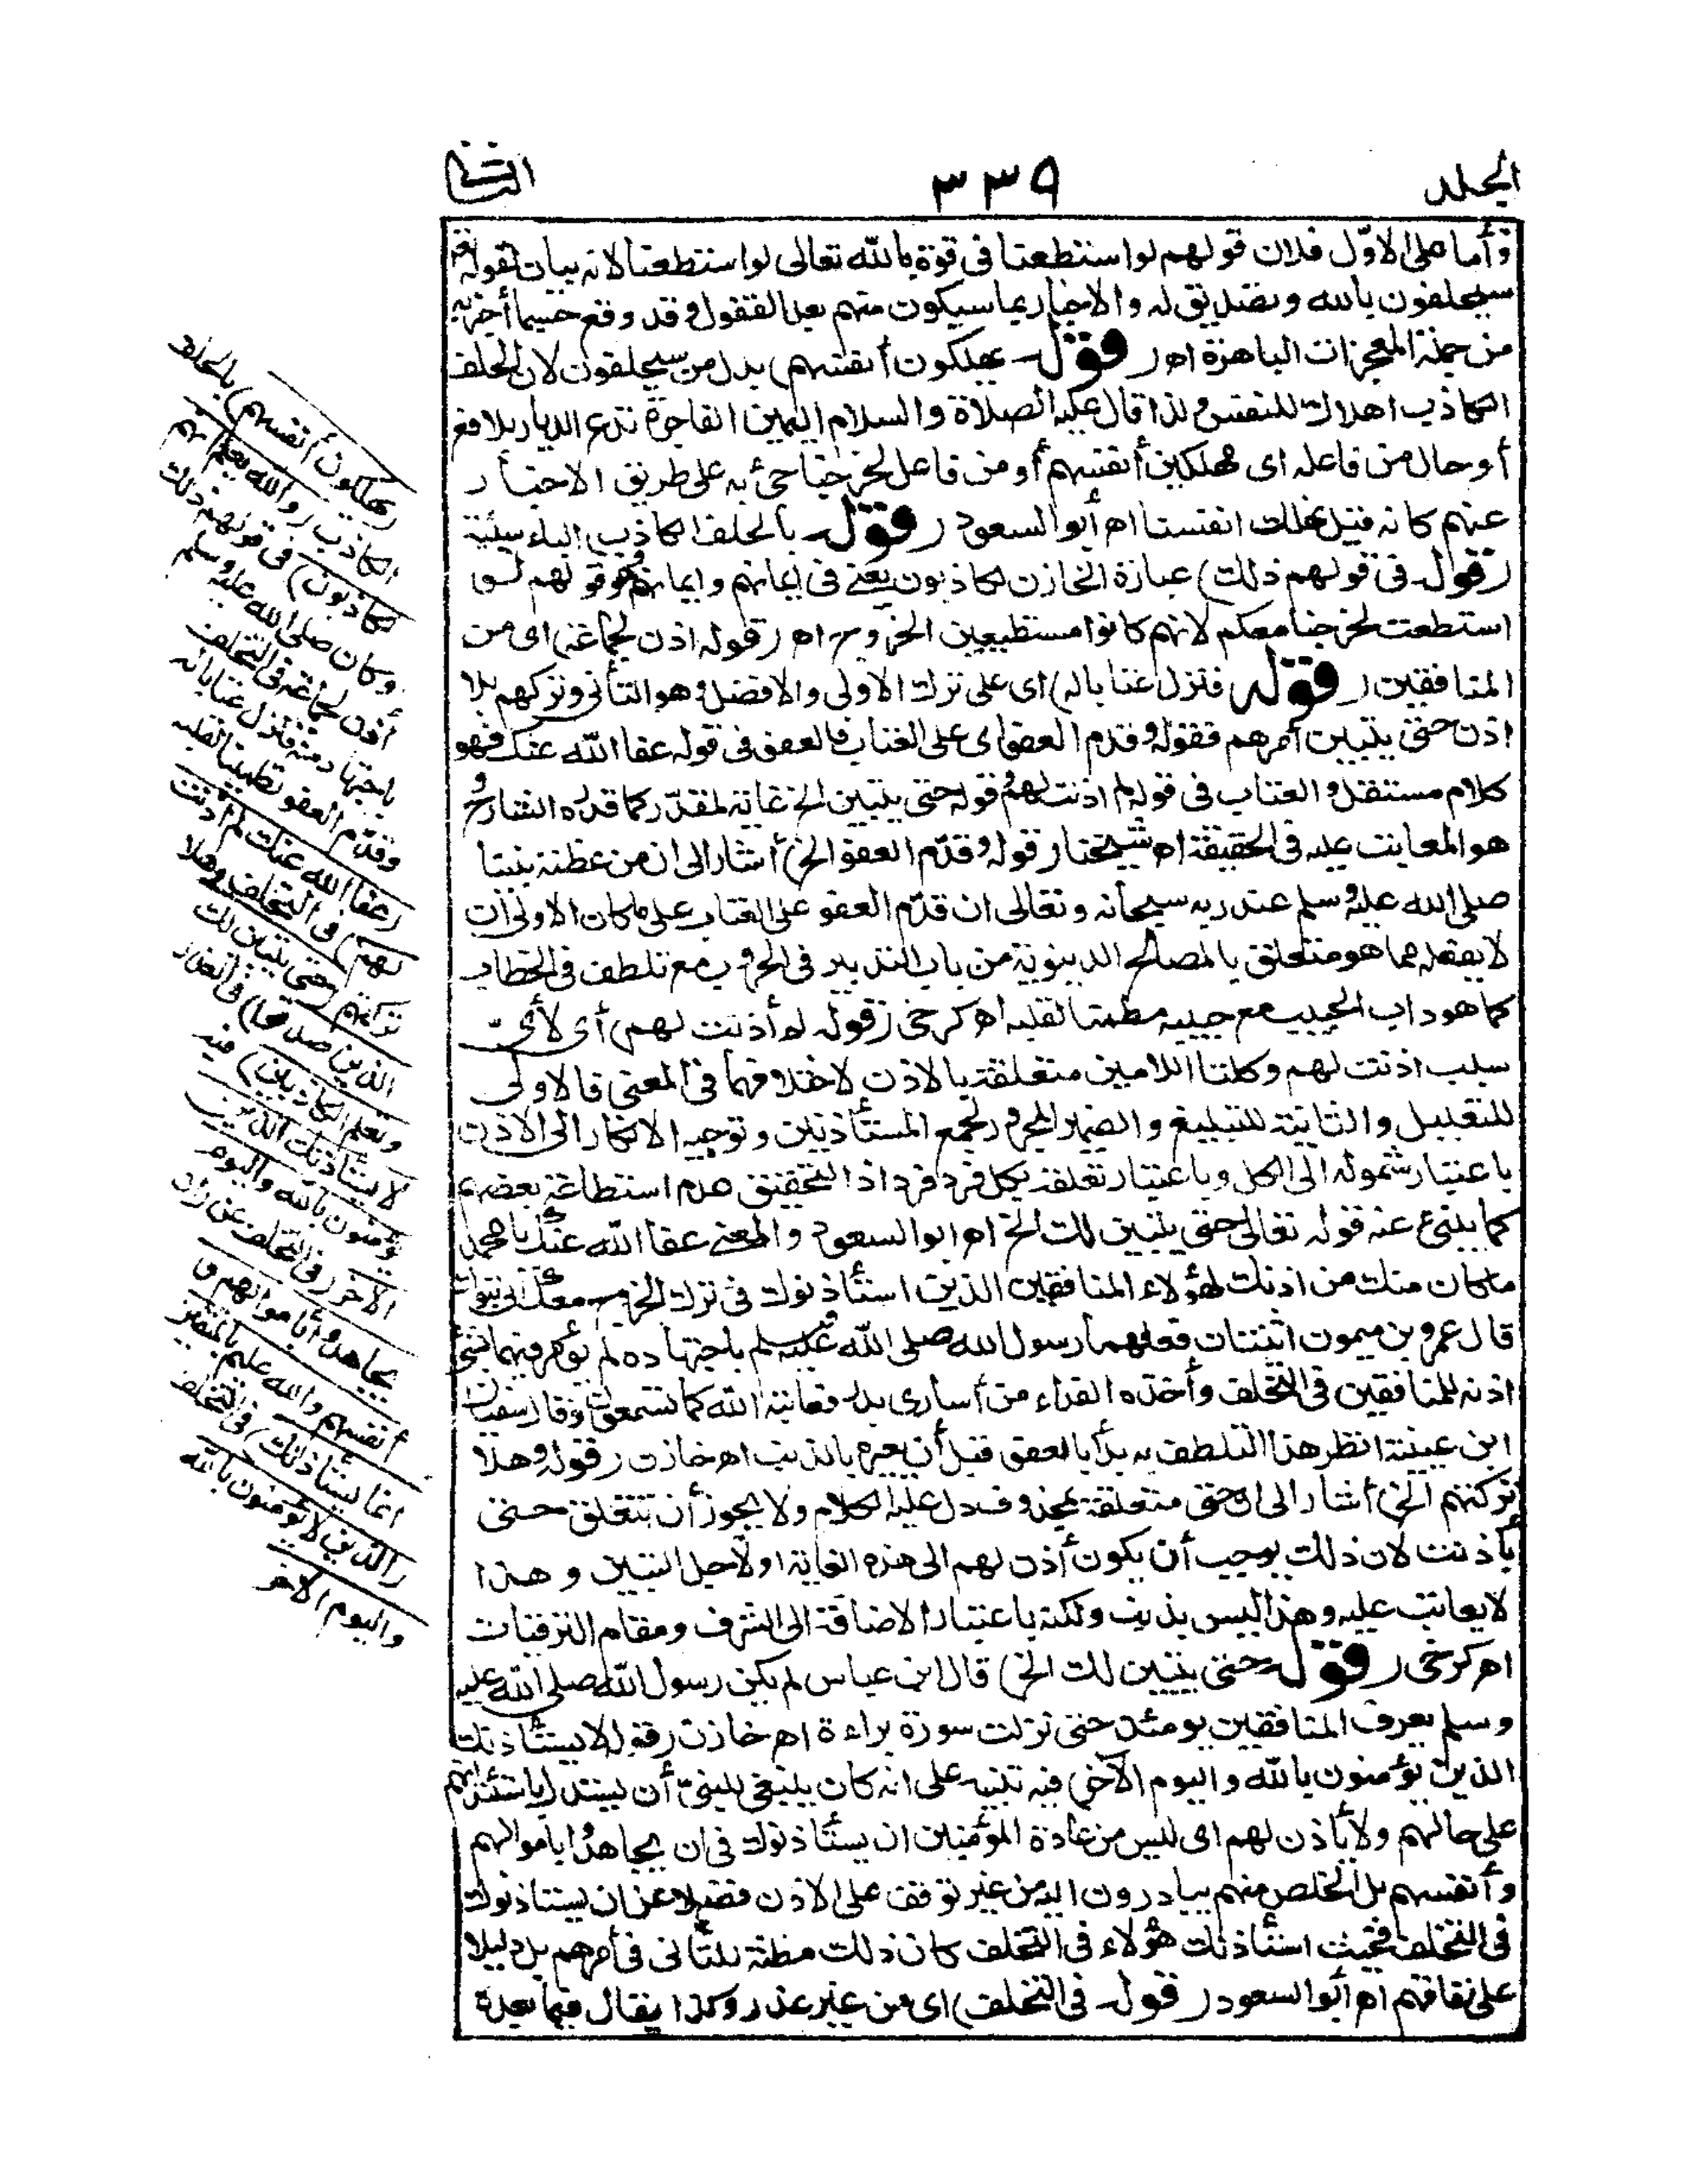 الجلد
٣٣٩
الثانى
وأما على الاوّل فلان قولهم لو استطعنا فى قوة بالله تعالى لو استطعنا لانه بيان لقوله تعالى
سيحلفون بالله وتصديق له والاخبار بما سيكون منهم بعد القفول وقد وقع حسبما أخبر به
من جملة المعجزات الباهرة اه (قوله يهلكون أنفسهم) بدل من سيحلفون لان الحلف
الكاذب اهلاك للنفس ولذا قال عليه الصلاة والسلام اليمين الفاجرة تدع الديار بلاقع
أو حال من فاعله اى مهلكين أنفسهم أو من فاعل لخرجنا جئ به على طريق الاخبار
عنهم كانه قيل نهلك انفسنا اه أبو السعود (قوله بالحلف الكاذب) الباء سببية
(قوله فى قولهم ذلك) عبارة الخازن لكاذبون يعنى فى أيمانهم وايمانهم وهو قولهم لو
استطعت لخرجنا معكم لانهم كانوا مستطيعين الخروج اه (قوله اذن لجماعة) اى من
المنافقين (قوله فنزل عتابا له) اى على ترك الاولى والافضل وهو التأنى وتركهم بلا
اذن حتى يتبين أمرهم فقوله وقدم العفو اى على العتاب فالعفو فى قوله عفا الله عنك فهو
كلام مستقل والعتاب فى قوله لم اذنت لهم وقوله حتى يتبين الخ غاية لمقدّر كما قدره الشارح و
هو المعاتب عليه فى الحقيقة اه شيخنا (قوله وقدّم العفو الخ) أشار الى ان من عظمة نبينا
صلى الله عليه وسلم عند ربه سبحانه وتعالى ان قدّم العفو على العتاب على ما كان الاولى أن
لا يفعله مما هو متعلق بالمصالح الدينوية من باب التدبير فى الحروب مع تلطف فى الخطاب
كما هو داب الحبيب مع حبيبه مطمئنا لقلبه اه كرخى (قوله لم أذنت لهم) أى لأىّ
سبب اذنت لهم وكلتا اللامين متعلقة بالاذن لاختلافهما فى المعنى فالاولى
للتعليل والثانية للتبليغ والضمير المجرور لجميع المستأذنين وتوجيه الانكار الى الاذن
باعتبار شموله الى الكل وباعتبار تعلقه بكل فرد فرد اذا لتحقق عدم استطاعة بعضهم
كما ينبئ عنه قوله تعالى حتى يتبين لك الخ اه ابو السعود والمعنى عفا الله عنك يا محمد
ما كان منك من اذنك لهؤلاء المنافقين الذين استأذنوك فى ترك الخروج معك الى تبوك
قال عمرو بن ميمون اثنتان فعلهما رسول الله صلى الله عليه وسلم باجتهاده لم يؤمر فيهما بشئ
اذنه للمنافقين فى التخلف وأخذه الفداء من أسارى بدر فعاتبه الله كما تسمعون وقال سفيان
ابن عيينة انظر هذا التلطف به بدأ بالعفو قبل أن يعيره بالذنب اه خازن (قوله وهلا
تركتهم الخ) أشار الى ان حتى متعلقة بمحذوف دل عليه الكلام ولا يجوز أن تتعلق حتى
بأذنت لان ذلك يوجب أن يكون أذن لهم الى هذه الغاية او لاجل التبين وهذا
لا يعاتب عليه وهذا ليس بذنب ولكنه باعتبار الاضافة الى الشرف ومقام الترقيات
اه كرخى (قوله حتى يتبين لك الخ) قال ابن عباس لم يكن رسول الله صلى الله عليه
وسلم يعرف المنافقين يومئذ حتى نزلت سورة براءة اه خازن (قوله لا يستأذنك
الذين يؤمنون بالله واليوم الآخر) فيه تنبيه على انه كان ينبغى للنبىّ أن يستدل باستئذانهم
على حالهم ولا يأذن لهم اى ليس من عادة المؤمنين ان يستأذنوك فى ان يجاهدوا باموالهم
وأنفسهم بل الخلص منهم يبادرون اليه من غير توقف على الاذن فضلا عن ان يستأذنوك
فى التخلف فحيث استأذنك هؤلاء فى التخلف كان ذلك مظنة للتأنى فى أمرهم بل دليلا
على نفاقهم اه أبو السعود (قوله فى التخلف) اى من غير عذر وكذا يقال فيما بعده
(يهلكون أنفسهم) بالحلف
الكاذب (والله يعلم انهم
لكاذبون) فى قولهم ذلك
وكان صلى الله عليه وسلم
أذن لجماعة فى التخلف
باجتهاد منه فنزل عتابا له
وقدّم العفو تطمينا لقلبه
(عفا الله عنك لم أذنت
لهم) فى التخلف وهلا
تركتهم (حتى يتبين لك
الذين صدقوا) فى العذر
(وتعلم الكاذبين) فيه
(لا يستأذنك الذين
يؤمنون بالله واليوم
الآخر) فى التخلف عن (ان
يجاهدوا بأموالهم و
أنفسهم والله عليم بالمتقين
انما يستأذنك) فى التخلف
(الذين لا يؤمنون بالله
واليوم الآخر